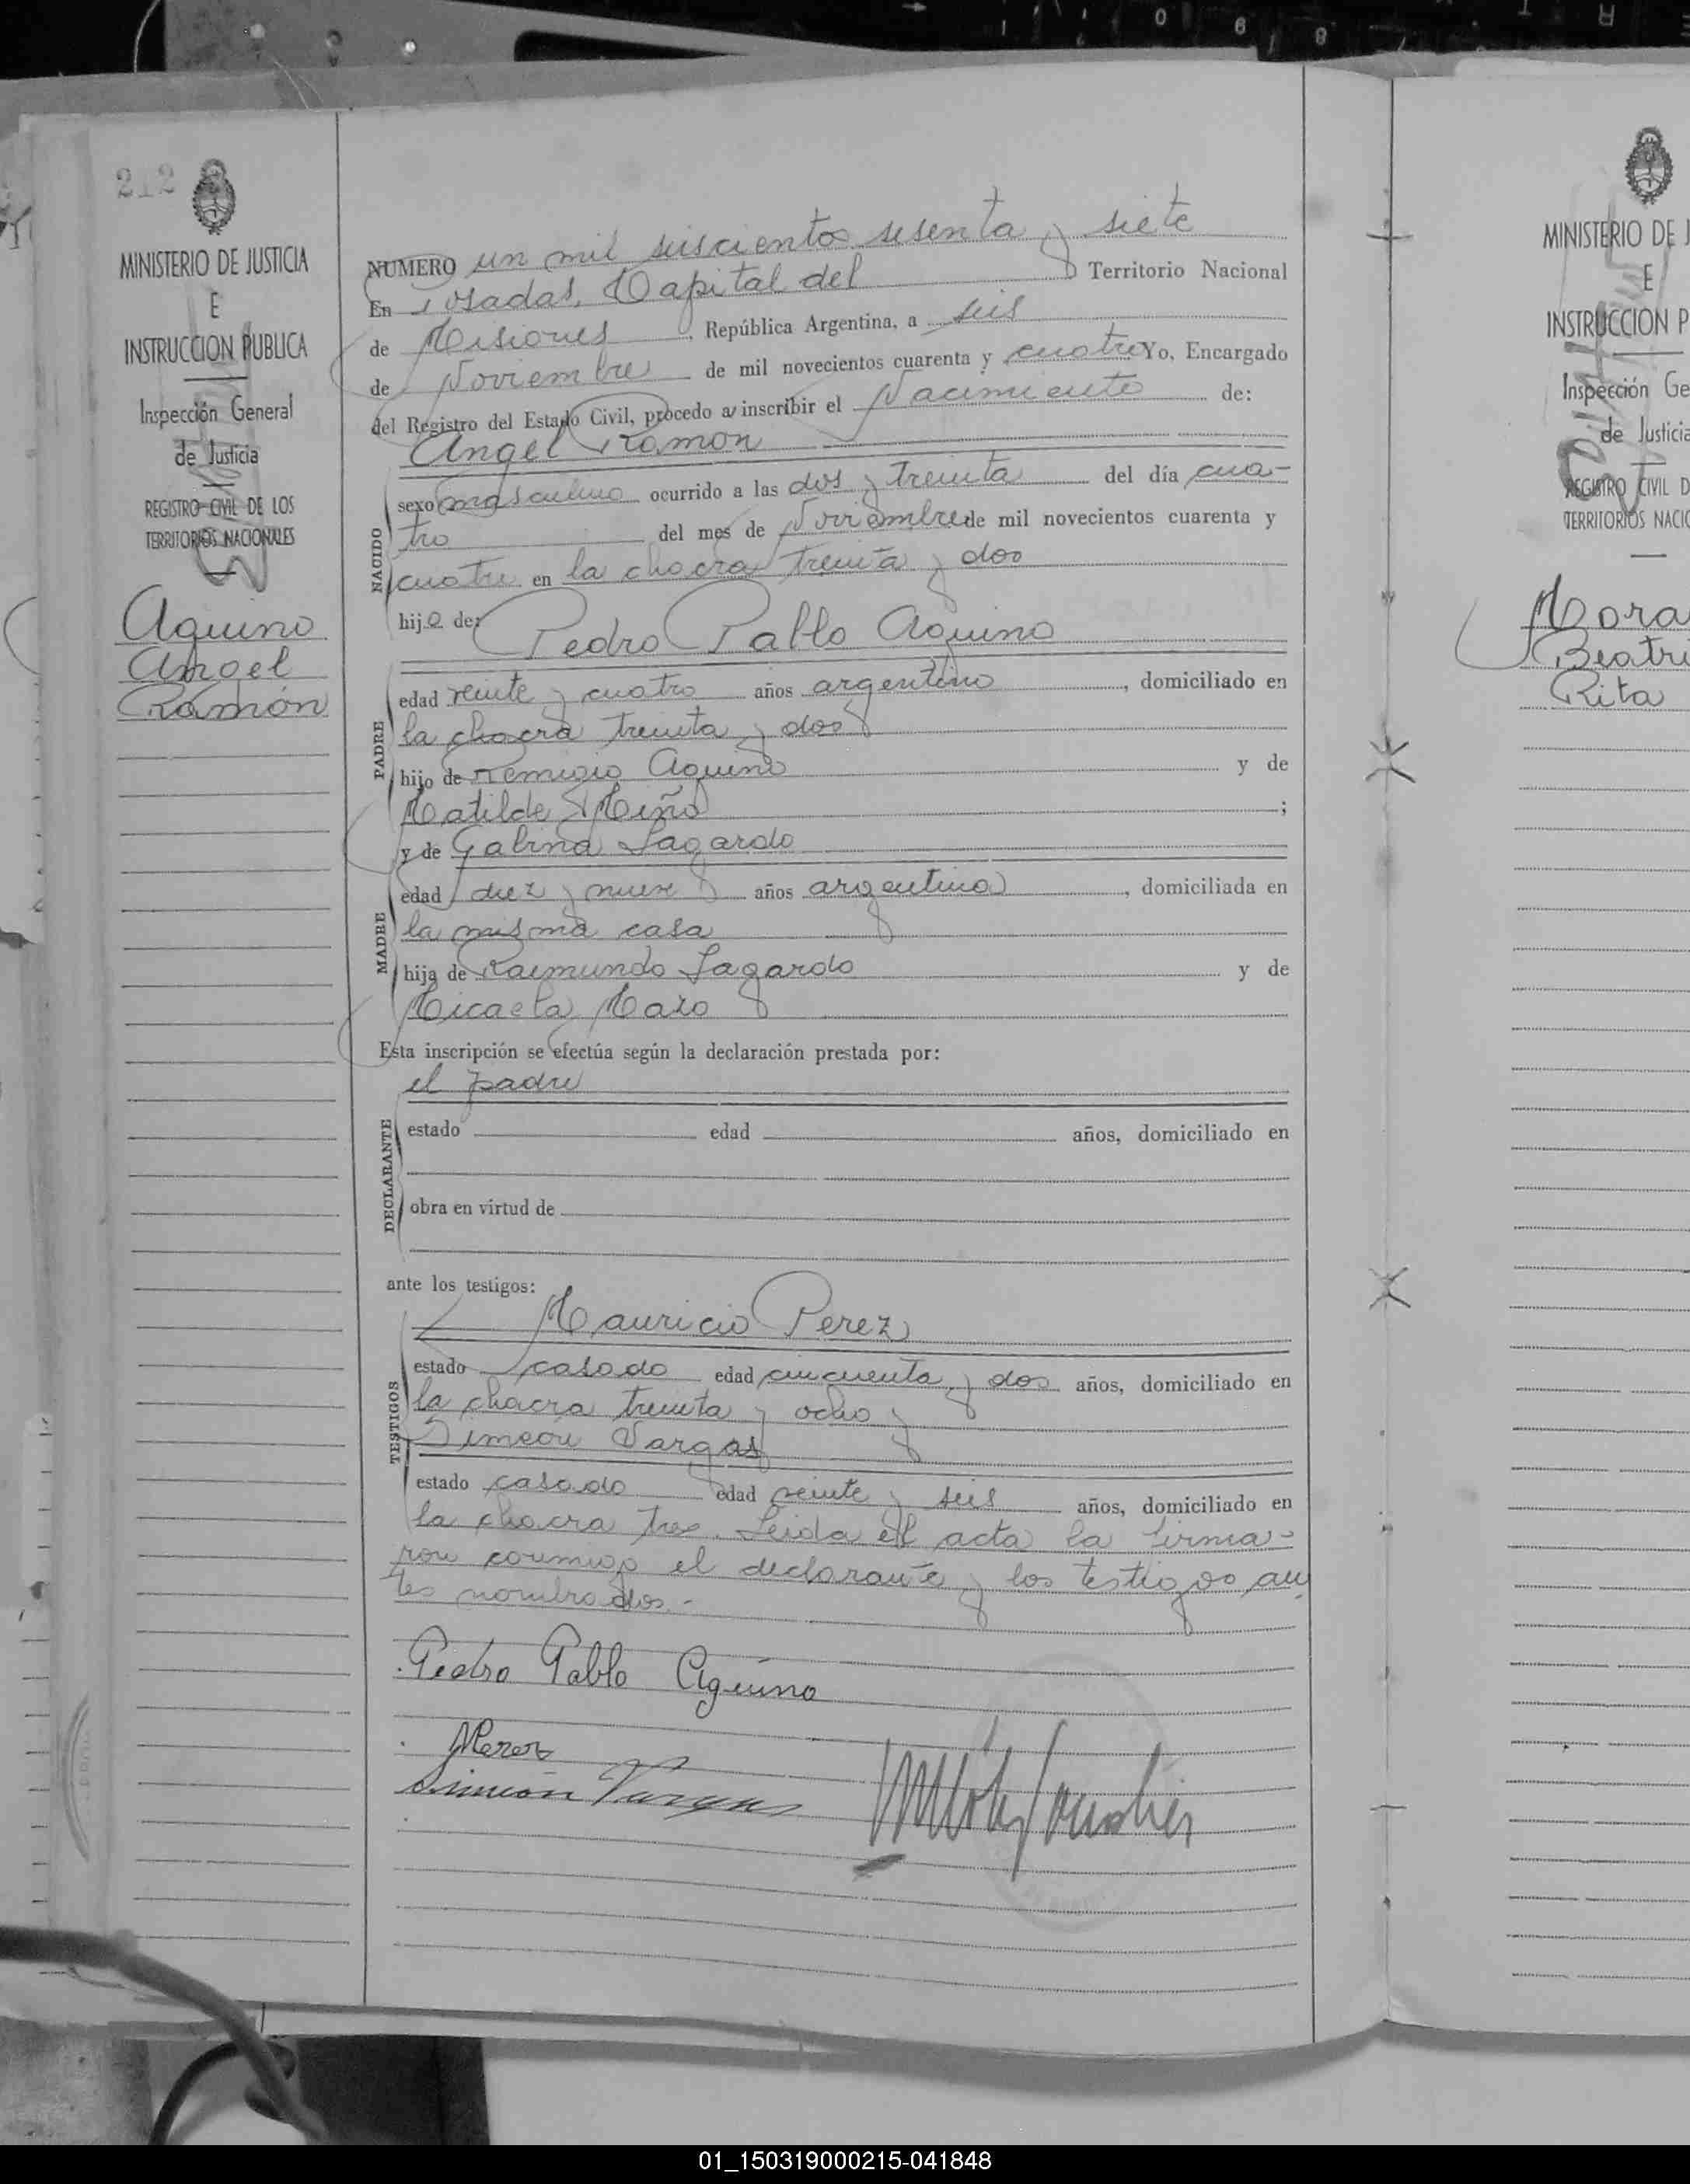 212
MINISTERIO DE JUSTICIA
E
INSTRUCCION PUBLICA
Inspección General
de Justicia
REGISTRO CIVIL DE LOS
TERRITORIOS NACIONALES
Aquino
Angel
Ramón
NUMERO un mil seiscientos sesenta y siete
En Posadas, Capital del Territorio Nacional
de Misiones, República Argentina, a seis
de Noviembre de mil novecientos cuarenta y cuatro Yo, Encargado
del Registro del Estado Civil, procedo a inscribir el Nacimiento de:
Angel Ramon
NACIDO
sexo masculino ocurrido a las dos y treinta del día cua-
tro del mes de Noviembre de mil novecientos cuarenta y
cuatro en la chacra treinta y dos
hijo de: Pedro Pablo Aquino
PADRE
edad veinte y cuatro años argentino, domiciliado en
la chacra treinta y dos
hijo de Remigio Aquino y de
Matilde Miño;
y de Gabina Lagardo
MADRE
edad diez y nueve años argentina, domiciliada en
la misma casa
hija de Raimundo Lagardo y de
Micaela Mazo
Esta inscripción se efectúa según la declaración prestada por:
el padre
DECLARANTE
estado edad años, domiciliado en
obra en virtud de
ante los testigos:
Mauricio Perez
TESTIGOS
estado casado edad cincuenta y dos años, domiciliado en
la chacra treinta y ocho y
Simeón Vargas
estado casado edad veinte y seis años, domiciliado en
la chacra tres. Leida el acta la firma-
ron conmigo el declarante y los testigos an
tes nombrados.-
Pedro Pablo Aquino
MPerez
Simeón Vargas
MINISTERIO DE J
E
INSTRUCCION P
Inspección Ge
de Justicia
REGISTRO CIVIL D
TERRITORIOS NACIO
Mora
Beatri
Rita
01_150319000215-041848